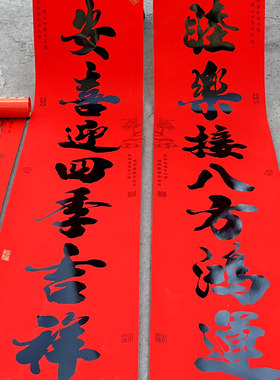 睦樂接八方鴻運
安喜迎四季吉祥